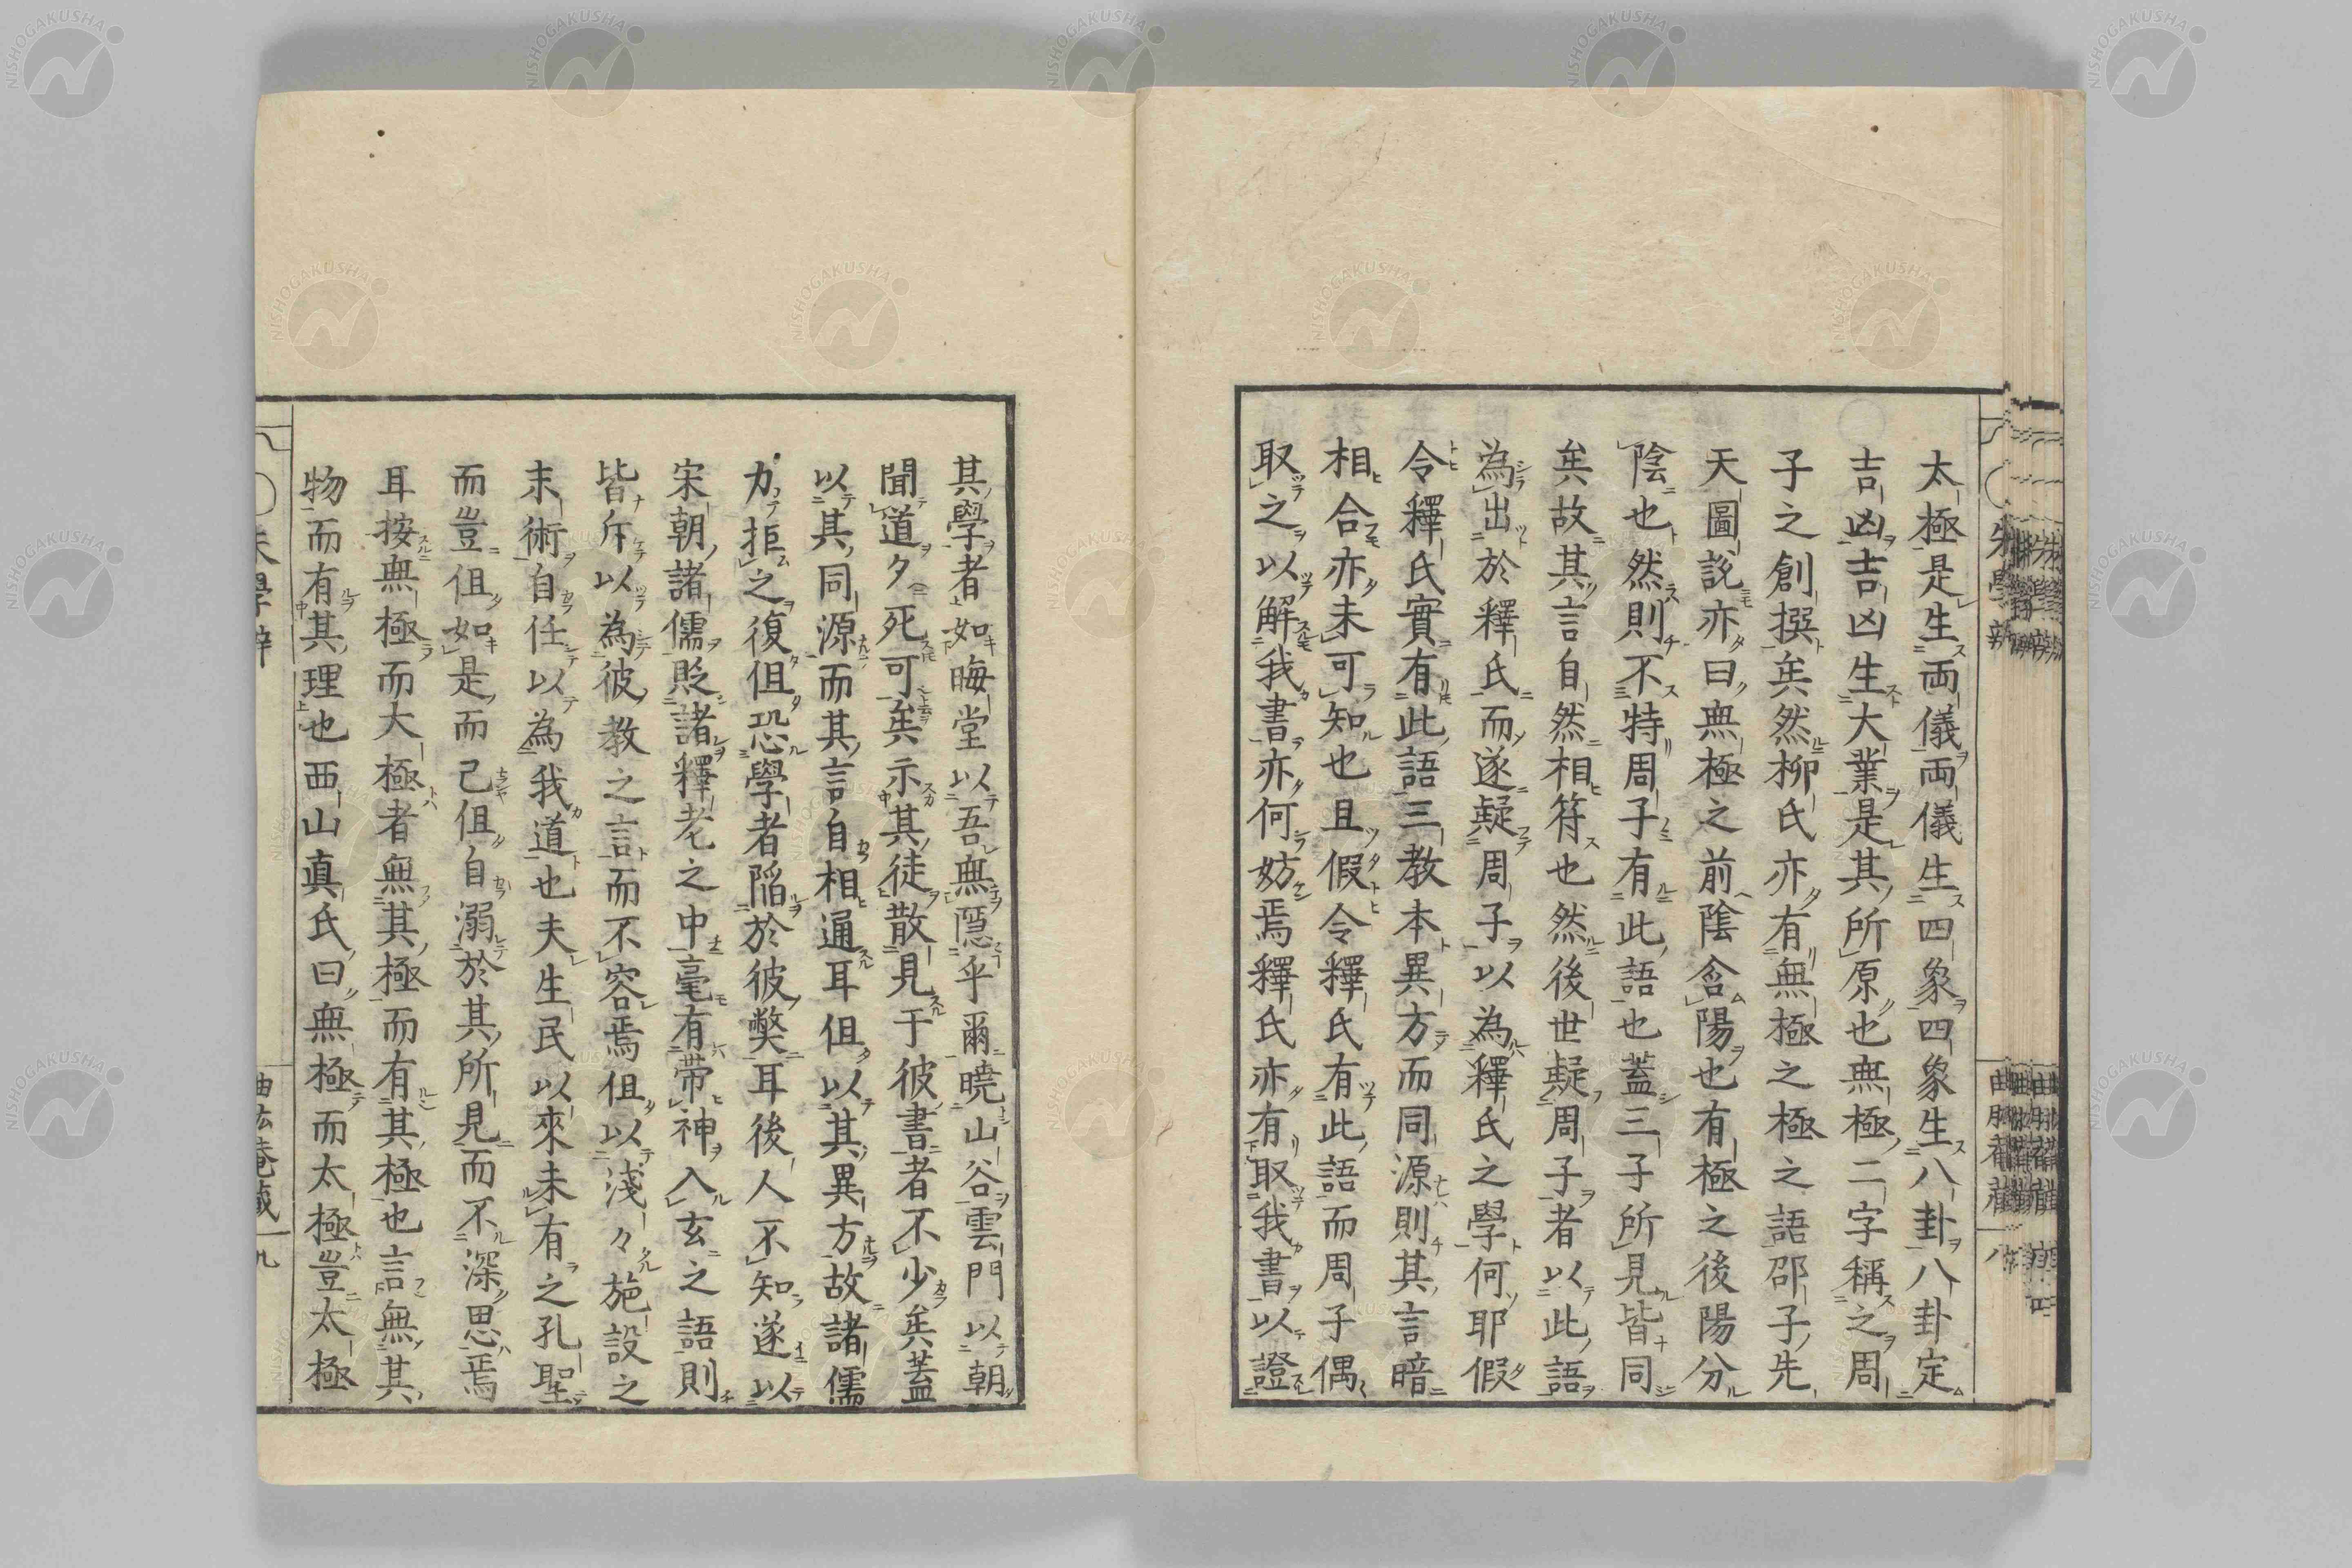 太極是生両儀両儀生四象四象生八卦八卦定
吉凶吉凶生大業是其所原也無極二字稱之周
子之創撰矣然柳氏亦有無極之極之語邵子先
天圖説亦曰無極之前陰含陽也有極之後陽分
陰也然則不特周子有此語也蓋三子所見皆同
矣故其言自然相符也然後世疑周子者以此語
為出於釋氏而遂疑周子以為釋氏之學何耶假
令釋氏實有此語三教本異方而同源則其言暗
相合亦未可知也且假令釋氏有此語而周子偶
取之以解我書亦何妨焉釋氏亦有取我書以證
其學者如晦堂以吾無隠乎爾曉山谷雲門以朝
聞道夕死可矣示其徒散見于彼書者不少矣蓋
以其同源而其言自相通耳但以其異方故諸儒
力拒之復但恐學者陷於彼弊耳後人不知遂以
宋朝諸儒貶諸釋老之中毫有帯神入玄之語則
皆斥以為彼教之言而不容焉但以淺々施設之
末術自任以為我道也夫生民以來未有之孔聖
而豈但如是而己但自溺於其所見而不深思焉
耳按無極而大極者無其極而有其極也言無其
物而有其理也西山真氏曰無極而太極豈太極
朱學辨
八
九
NISHOGAKUSHA